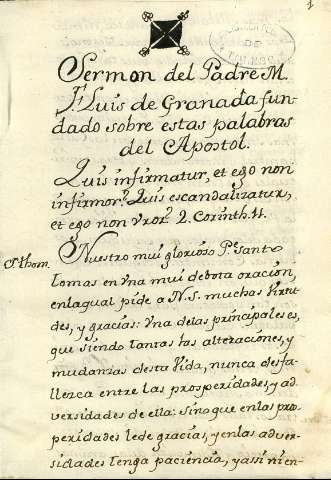 1
Sermon del Padre M.
F. Luis de Granada fun-
dado sobre estas palabras
del Apostol.
Quis infirmatur, et ego non
infirmor? Quis escandalizatur,
et ego non vror? 2. Corinth. 11.
Nuestro mui glorioso Pe. Santo
tomas en vna mui debota oracion,
enlaqual pide a N. S. muchas Virtu-
des, y gracias: vna delas principales es,
que siendo tantas las alteraciones, y
mudanzas desta Vida, nunca desfa-
llezca entre las prosperidades, y ad-
versidades de ella: Sino que enlas pros-
peridades le de gracias, y enlas adver-
sidades tenga paciencia, y assi ni en-